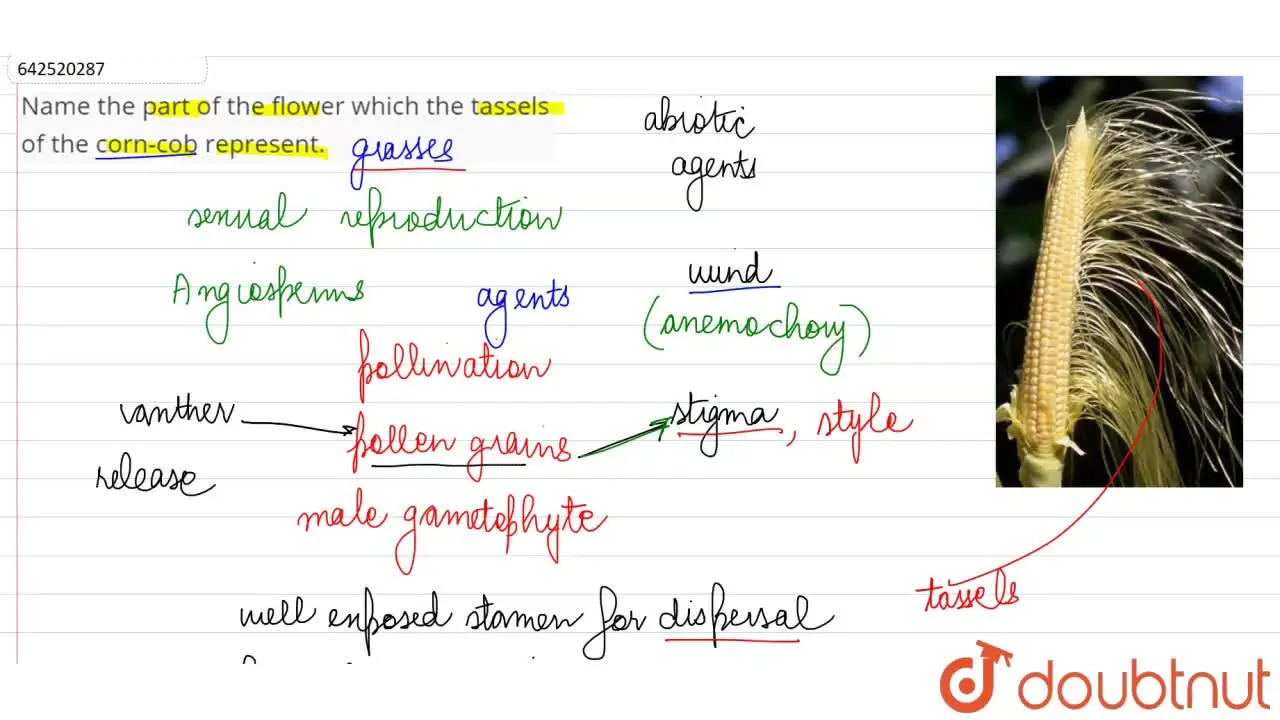 642520287
Name the part of the flower which the tassels
of the corn-cob represent.
grasses
abiotic
agents
sexual reproduction
Angiosperms
agents
wind
(anemochory)
pollination
anther
release
pollen grains
stigma, style
male gametophyte
tassels
well exposed stamen for dispersal
doubtnut